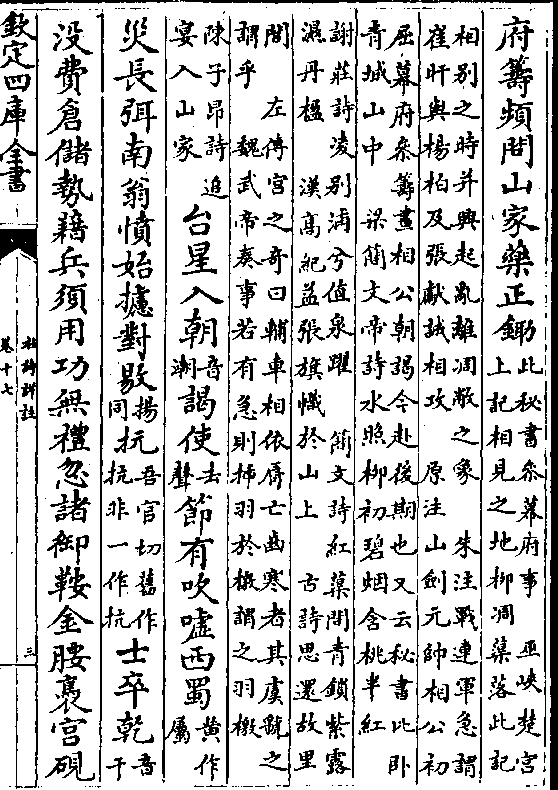 府籌頻問山家藥正鋤此秘書參幕府事 巫峽楚宮
上記相見之地柳凋蕖落此記
相别之時并興起亂離凋敝之象 朱注戰連軍急謂
崔旰與楊柏及張獻誠相攻 原注山劍元帥相公初
屈幕府參籌畫相公朝謁今赴後期也又云秘書比卧
青城山中 梁簡文帝詩水照柳初碧烟含桃半紅
謝莊詩凌别浦兮值泉躍 簡文詩紅蕖間青鎖紫露
濕丹楹 漢高紀益張旗幟於山上 古詩思還故里
閭 左傳宮之奇曰輔車相依脣亡齒寒者其虞虢之
謂乎 魏武帝奏事若有急則揷羽於檄謂之羽檄
陳子昂詩追
宴入山家
台星入朝音潮謁使去聲節有吹嘘西蜀黃作屬
災長弭南翁憤始攄對敭揚同抏吾官切舊作抗非一作抗士卒乾音干
没費倉儲勢藉兵須用功無禮忽諸御鞍金騕褭宮硯
欽定四庫全書
杜詩詳註
卷十七
三